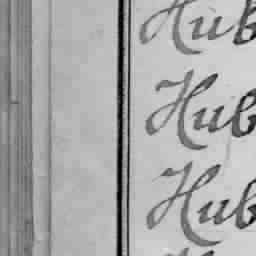 Hub
Hub
Hub